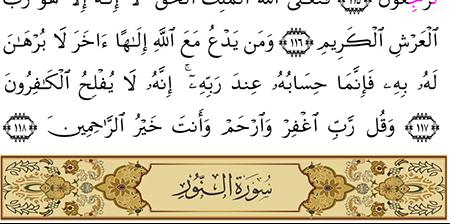 تُرْجَعُونَ ﴿١١٥﴾ فَتَعَٰلَى ٱللَّهُ ٱلْمَلِكُ ٱلْحَقُّ لَآ إِلَٰهَ إِلَّا هُوَ رَبُّ
ٱلْعَرْشِ ٱلْكَرِيمِ ﴿١١٦﴾ وَمَن يَدْعُ مَعَ ٱللَّهِ إِلَٰهًا ءَاخَرَ لَا بُرْهَٰنَ
لَهُۥ بِهِۦ فَإِنَّمَا حِسَابُهُۥ عِندَ رَبِّهِۦٓ ۚ إِنَّهُۥ لَا يُفْلِحُ ٱلْكَٰفِرُونَ
﴿١١٧﴾ وَقُل رَّبِّ ٱغْفِرْ وَٱرْحَمْ وَأَنتَ خَيْرُ ٱلرَّٰحِمِينَ ﴿١١٨﴾
سُورَةُ النُّورِ